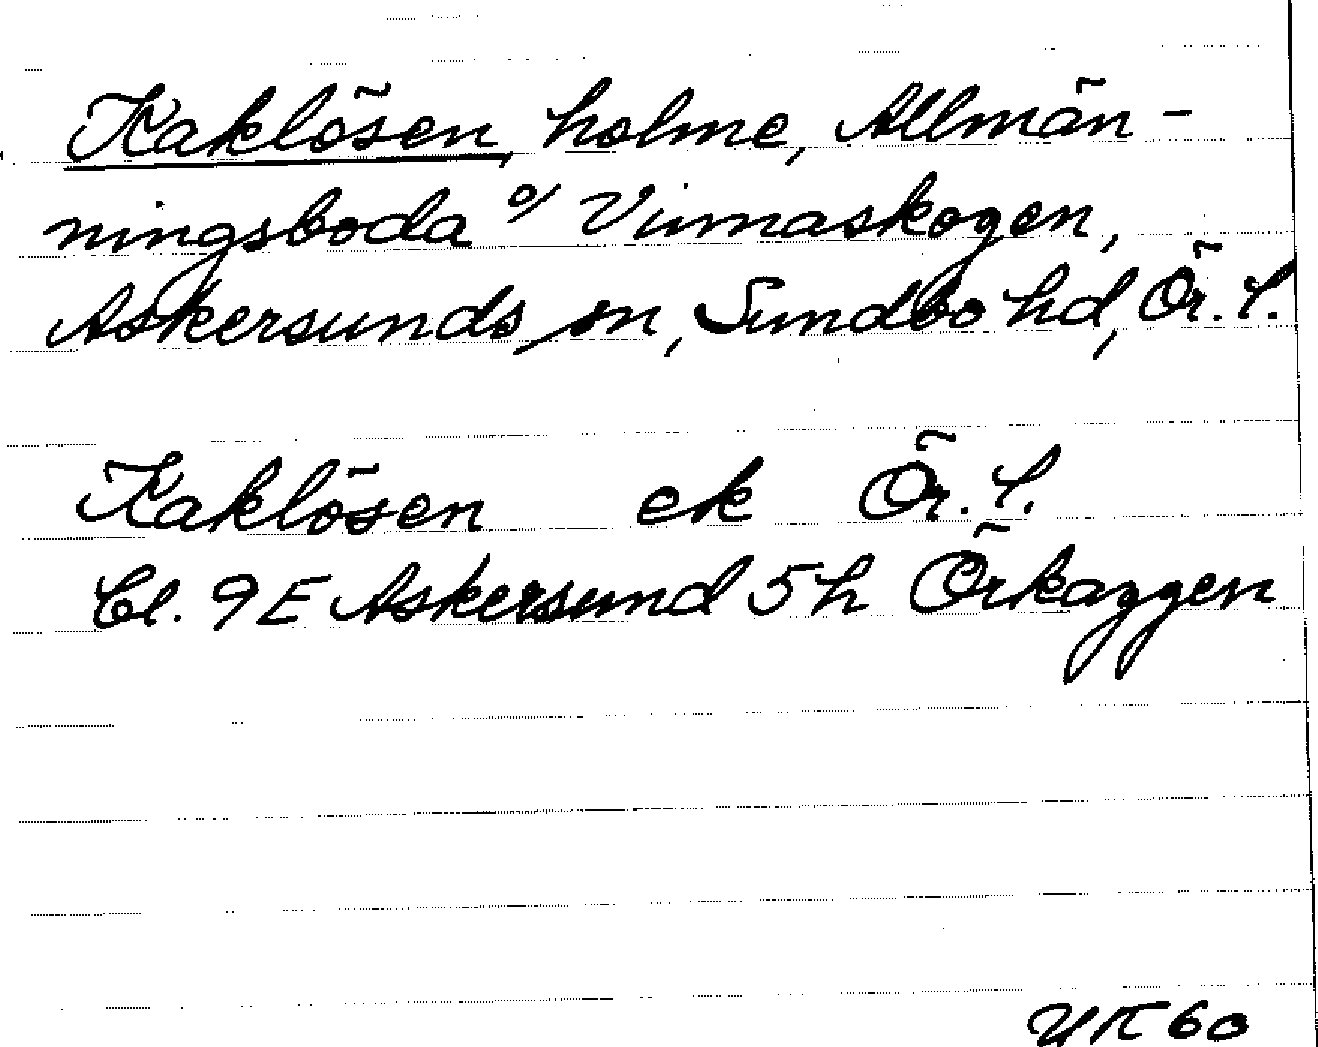 Kaklösen, holme, Allmän-
ningsboda o/ Vinnaskogen,
Askersunds sn, Sundbo hd, Ör. l.
Kaklösen ek Ör. l.
Bl. 9E Askersund 5h Örkaggen
UK 60